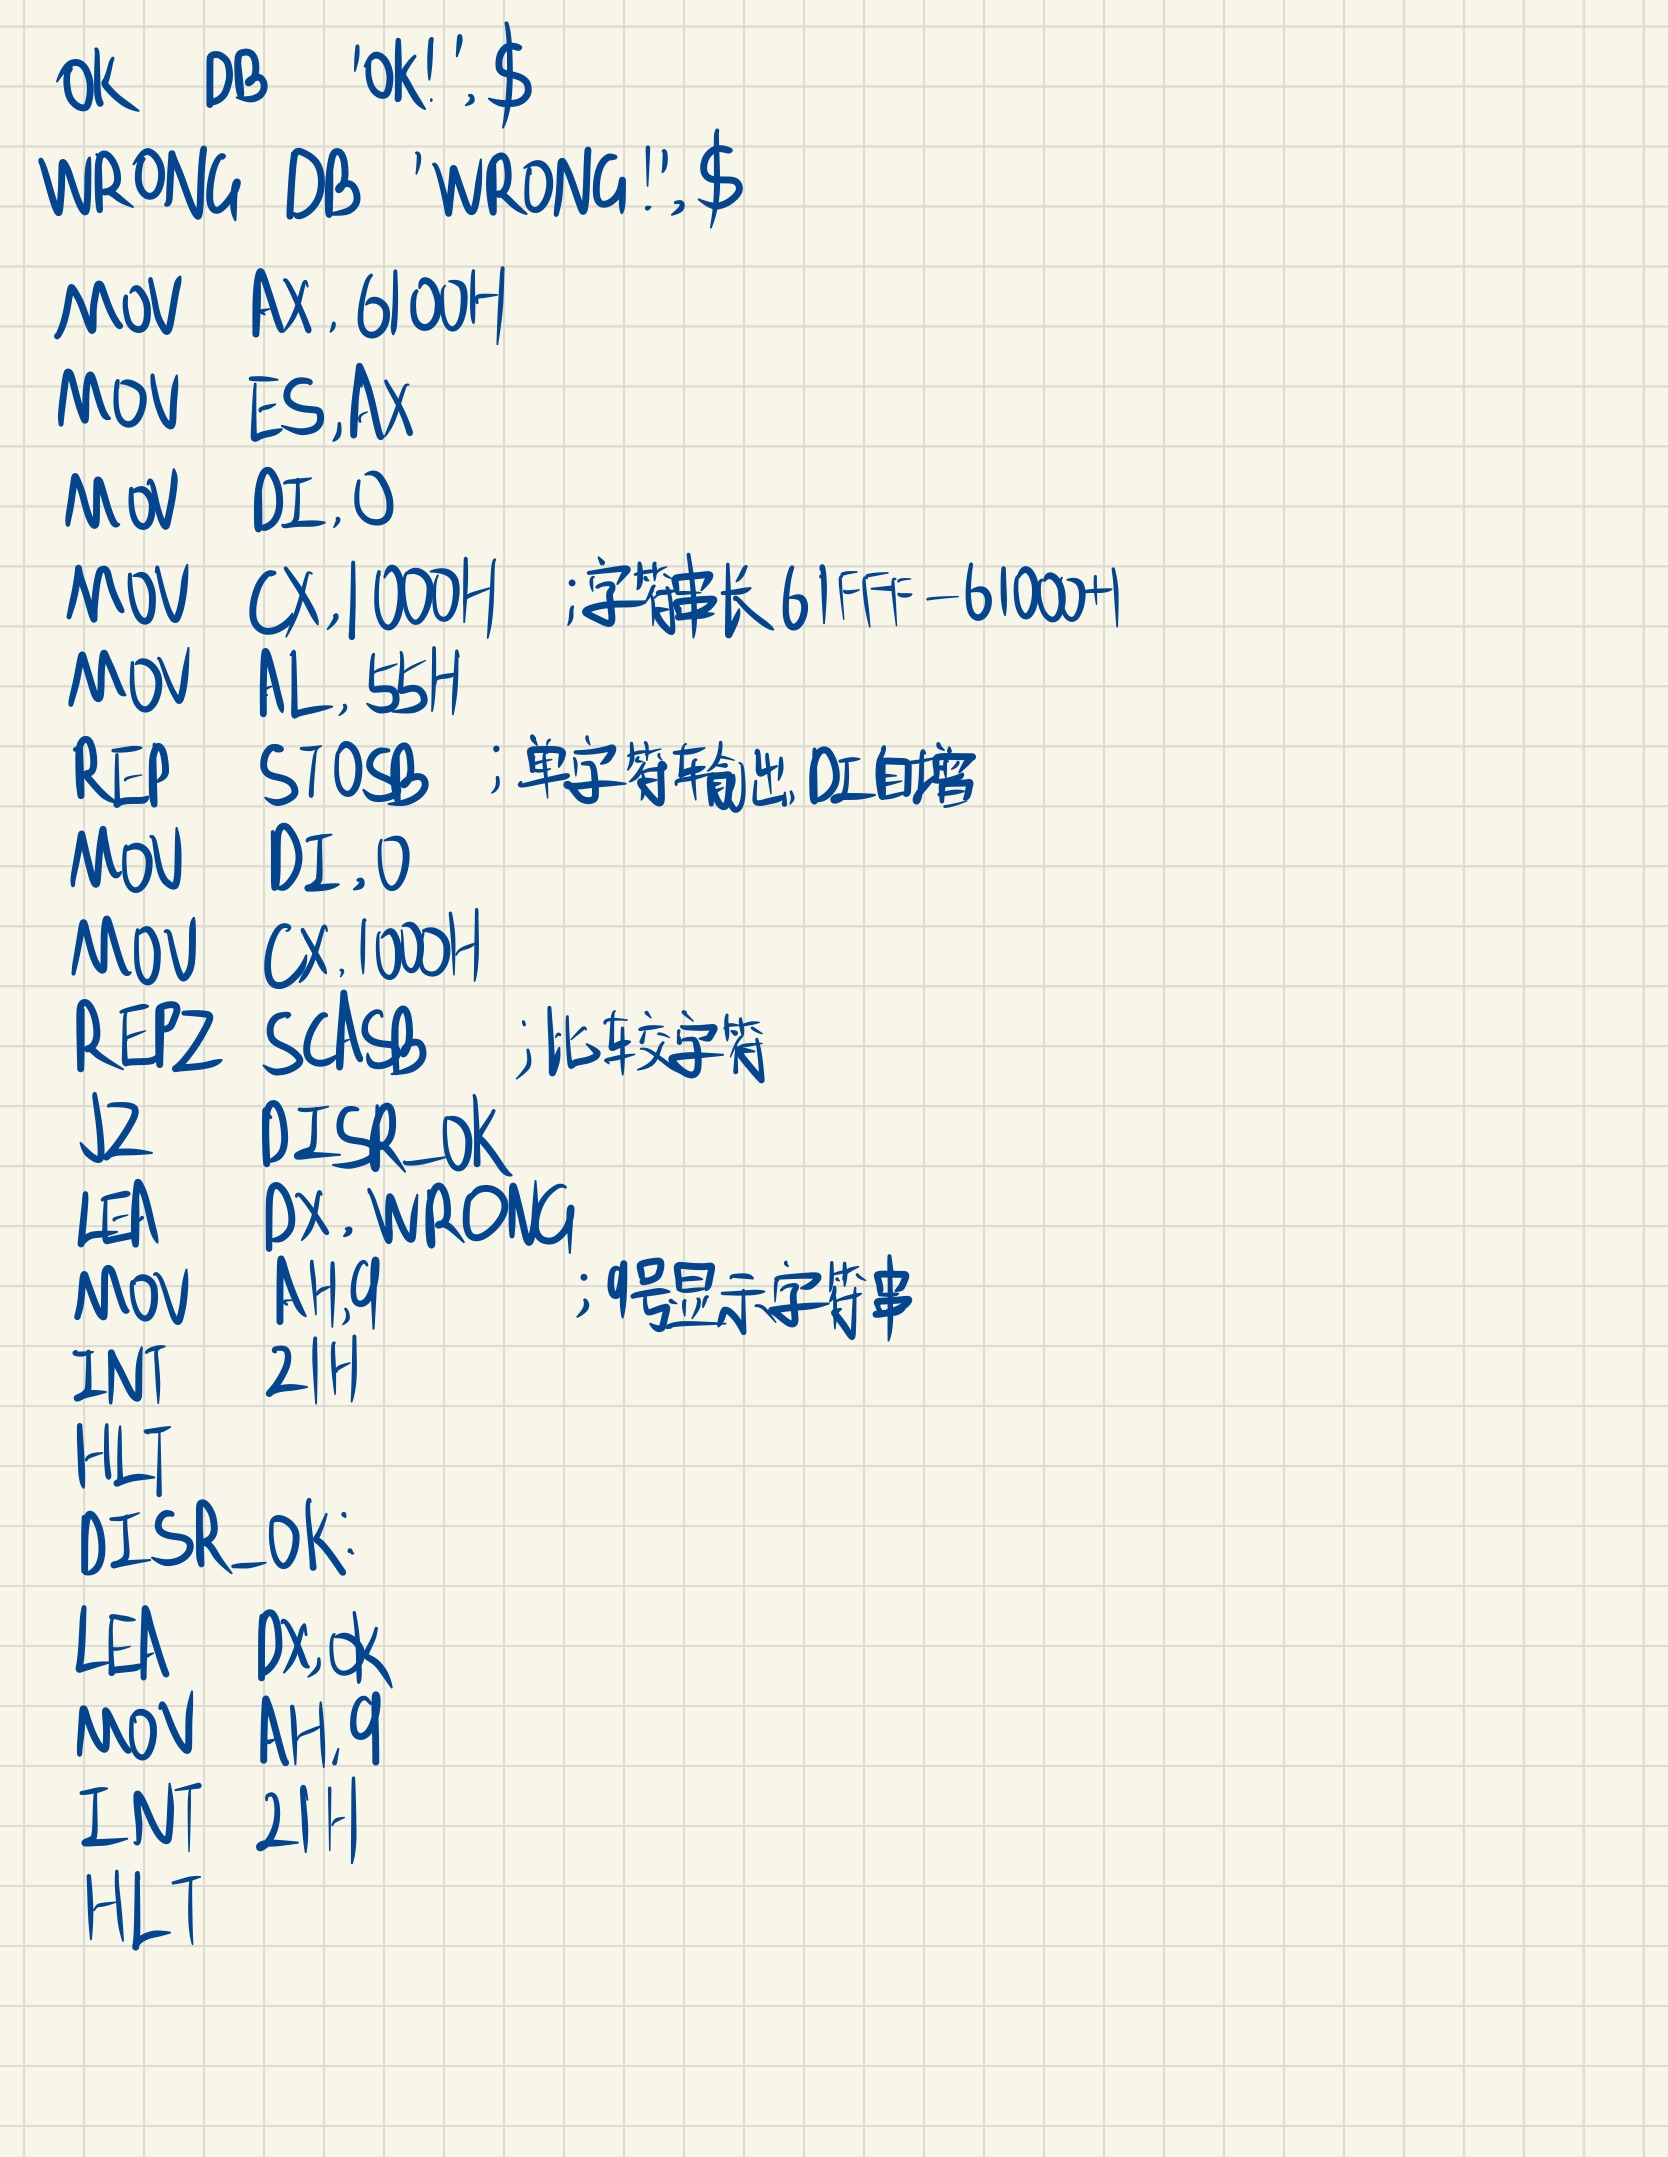 OK DB 'OK!',$
WRONG DB 'WRONG!',$
MOV AX,6100H
MOV ES,AX
MOV DI,0
MOV CX,1000H ;字符串长61FFF-61000+1
MOV AL,55H
REP STOSB ;单字符车输出,DI自增
MOV DI,0
MOV CX,1000H
REPZ SCASB ;比较字符
JZ DISR_OK
LEA DX,WRONG
MOV AH,9 ;9号显示字符串
INT 21H
HLT
DISR_OK:
LEA DX,OK
MOV AH,9
INT 21H
HLT